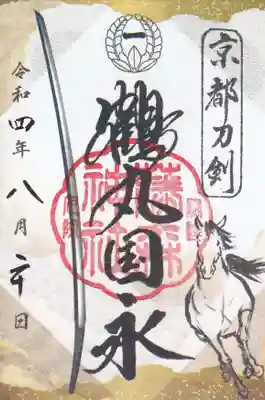 京都刀剣
一
鶴丸国永
藤森
神社
令和四年八月二十日